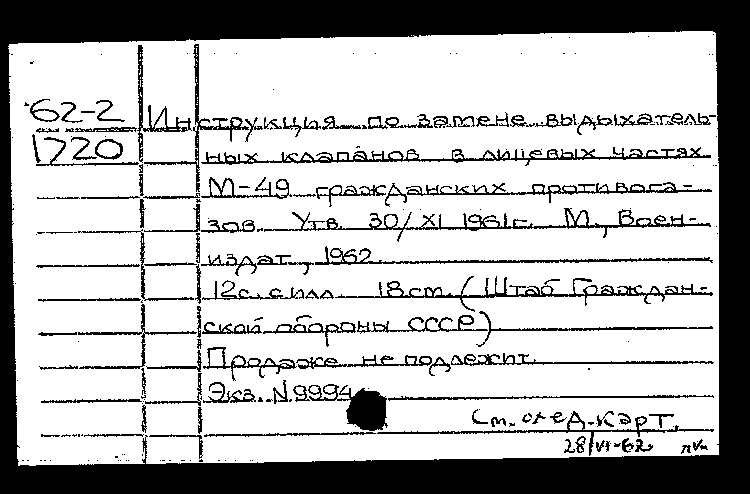 62-2 Инструкция по замене выдыхатель-
1720 ных клапанов в лицевых частях
М-49 гражданских противога-
зов. Утв. 30/XI 1961г. М., Воен-
издат, 1962.
12с. с илл. 18см. (Штаб Граждан-
ской обороны СССР)
Продаже не подлежит.
Экз. N 9994
См. след. карт.
28/VI-62.